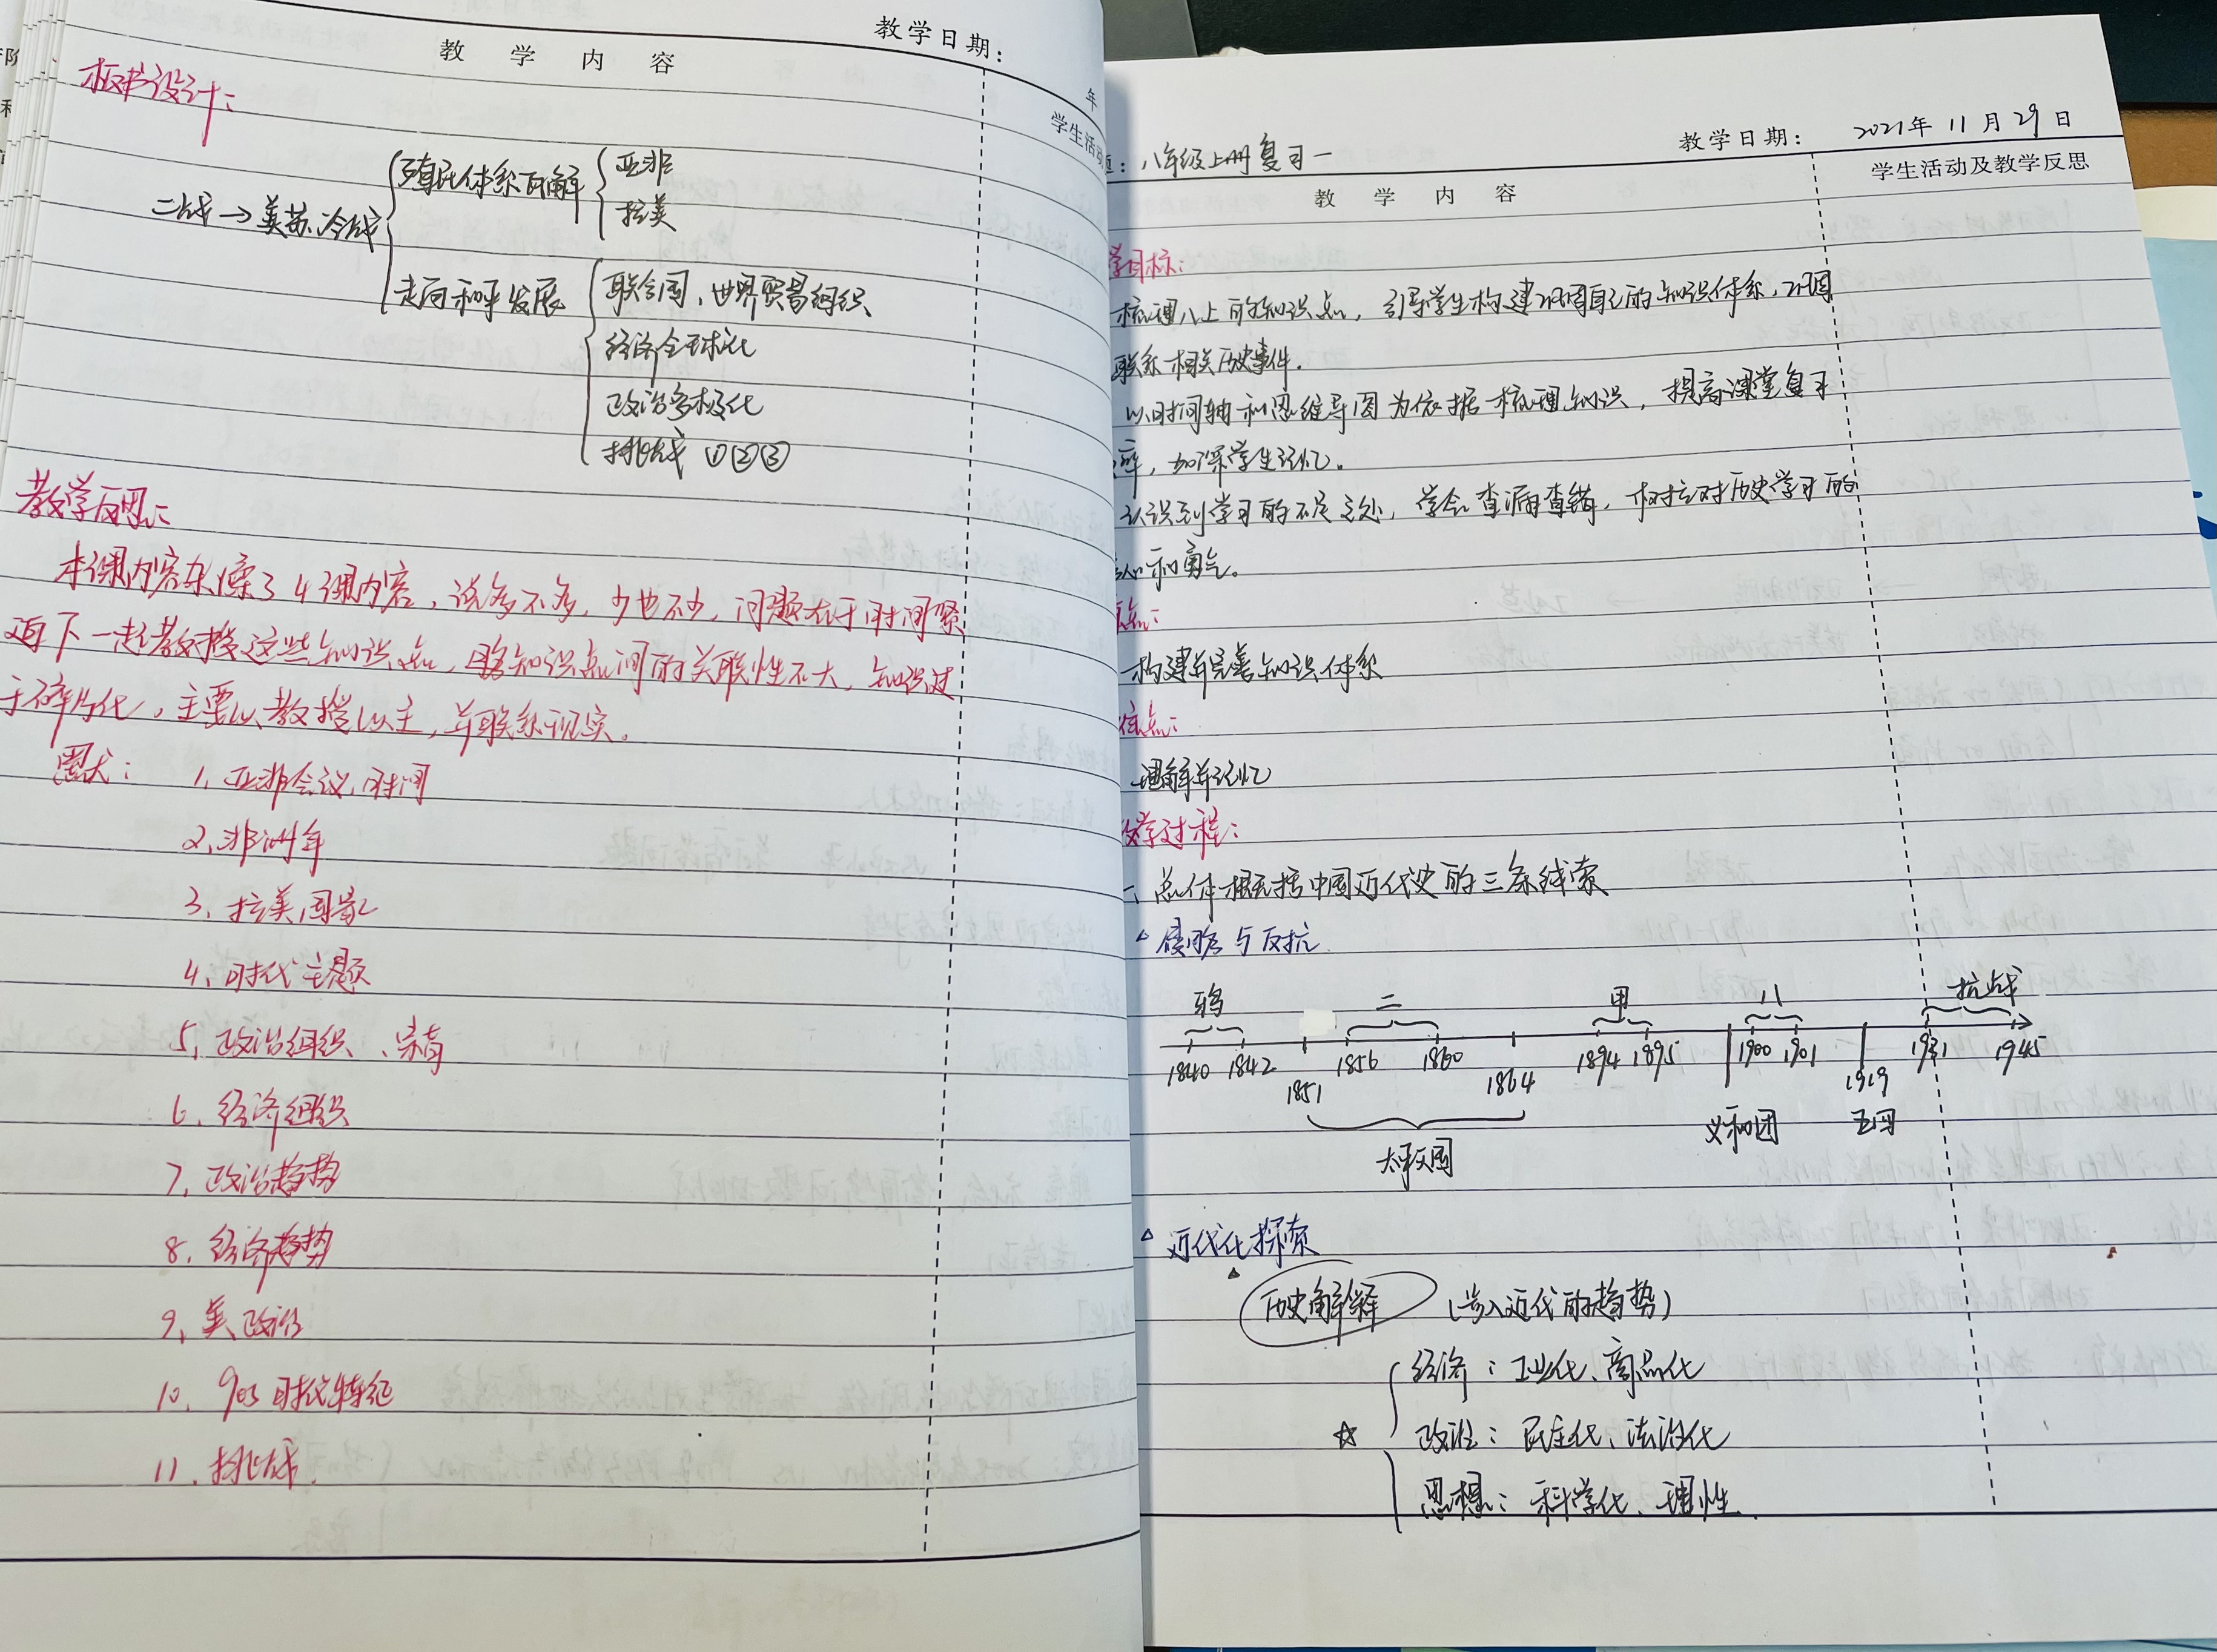 教学日期：
教 学 内 容
年
学生活动
板书设计：
二战→美苏冷战
殖民体系瓦解
亚非
拉美
走向和平发展
联合国、世界贸易组织
经济全球化
政治多极化
挑战 ①②③
教学反思：
本课内容杂糅了4课内容，说多不多，少也不少，问题在于时间紧
迫下一起教授这些知识点，且各知识点间的关联性不大，知识过
于碎片化，主要以教授以主，并联系现实。
圈犬： 1、亚非会议，时间
2、非洲年
3、拉美，国家
4、时代主题
5、政治组织、宗旨
6、经济组织
7、政治趋势
8、经济趋势
9、美政治
10、90s时代特征
11、挑战
教学日期： 2021年 11月 29日
题：八年级上册复习一
教 学 内 容
学生活动及教学反思
学目标：
梳理八上的知识点，引导学生构建巩固自己的知识体系，巩固
联系相关历史事件。
以时间轴和思维导图为依据梳理知识，提高课堂复习
率，加深学生记忆。
认识到学习的不足之处，学会查漏查错，树立对历史学习的
信心和勇气。
重点：
构建并完善知识体系
难点：
理解并记忆
教学过程：
一、总体概括中国近代史的三条线索
△ 侵略与反抗
鸦 二 甲 八 抗战
1840 1842 1851 1856 1860 1864 1894 1895 1900 1901 1919 1931 1945
太平天国 义和团 五四
△ 近代化探索
历史解释 （步入近代的趋势）
经济：工业化、商品化
☆ 政治：民主化、法治化
思想：科学化、理性